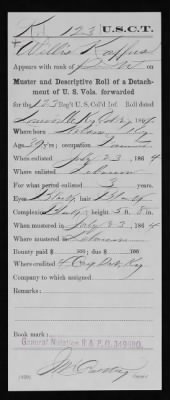 K. 123 U.S.C.T.
Willis
Appears with rank of on
Muster and Descriptive Roll of a Detach-
ment of U. S. Vols. forwarded
for the 123 Reg't U.S. Col'd Inf. Roll dated
Louisville Ky 186
Where born Ky
Age 39 y'rs; occupation Farmer
When enlisted July 23, 1864
Where enlisted Lebanon
For what period enlisted 3 years.
Eyes Black; hair Black
Complexion Black; height 5 ft. 8 in.
When mustered in July 23, 1864
Where mustered in Lebanon
Bounty paid $ 100; due $ 100
Where credited 4 Cong Dist. Ky
Company to which assigned
Remarks:
Book mark:
General Notation R. & P. O. 349480